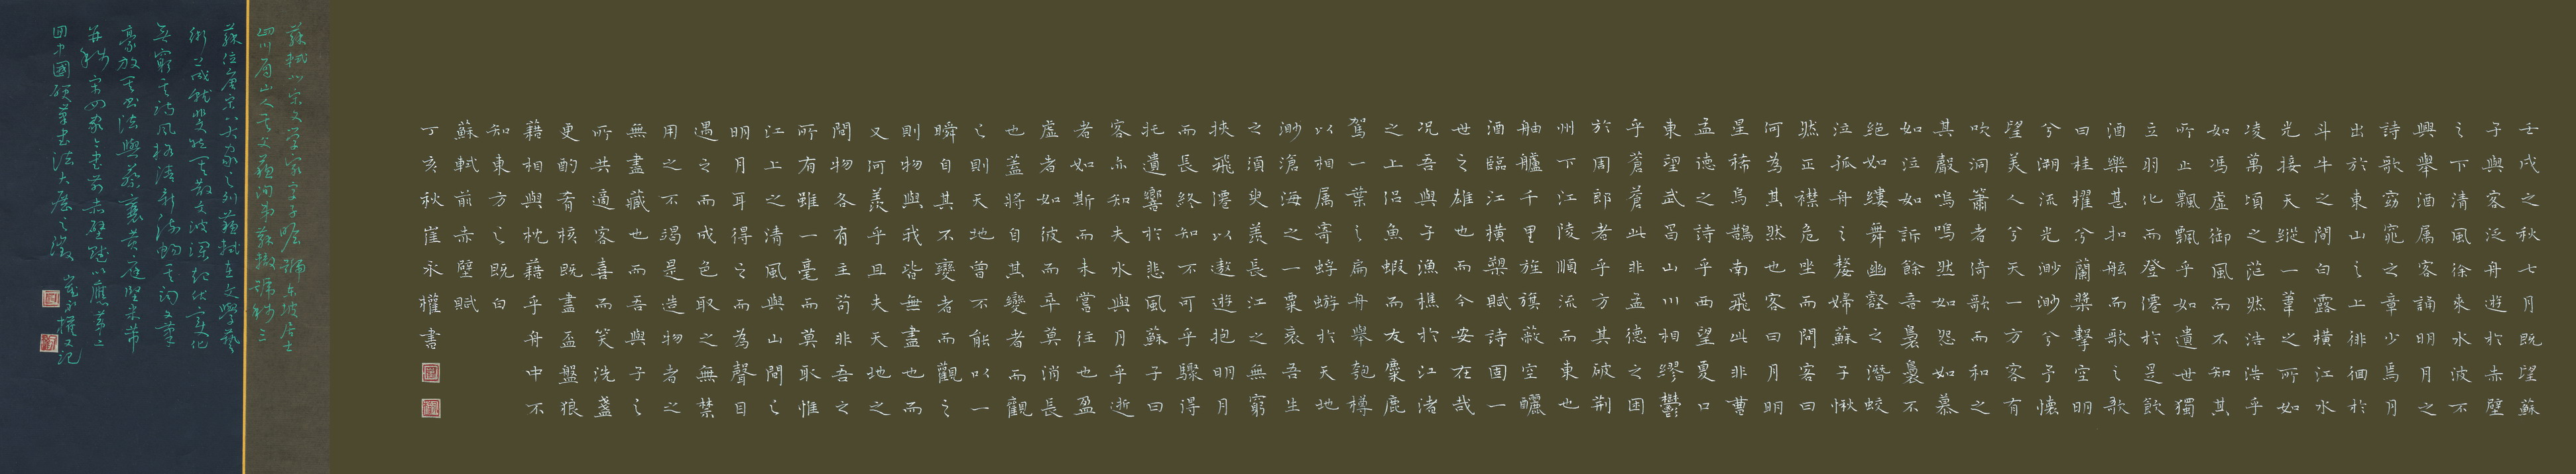 壬戌之秋七月既望蘇
子與客泛舟遊於赤壁
之下清風徐來水波不
興舉酒属客誦明月之
詩歌窈窕之章少焉月
出於東山之上徘徊於
斗牛之間白露橫江水
光接天縱一葦之所如
凌萬頃之茫然浩浩乎
如馮虛御風而不知其
所止飄飄乎如遺世獨
立羽化而登僊於是飲
酒樂甚扣舷而歌之歌
曰桂櫂兮蘭槳擊空明
兮溯流光渺渺兮予懷
望美人兮天一方客有
吹洞簫者倚歌而和之
其聲嗚嗚然如怨如慕
如泣如訴餘音裊裊不
絕如縷舞幽壑之潛蛟
泣孤舟之嫠婦蘇子愀
然正襟危坐而問客曰
何為其然也客曰月明
星稀烏鵲南飛此非曹
孟德之詩乎西望夏口
東望武昌山川相繆鬱
乎蒼蒼此非孟德之困
於周郎者乎方其破荊
州下江陵順流而東也
舳艫千里旌旗蔽空釃
酒臨江橫槊賦詩固一
世之雄也而今安在哉
况吾與子漁樵於江渚
之上侣魚蝦而友麋鹿
駕一葉之扁舟舉匏樽
以相属寄蜉蝣於天地
渺滄海之一粟哀吾生
之須臾羨長江之無窮
挾飛僊以遨遊抱明月
而長終知不可乎驟得
托遺響於悲風蘇子曰
客亦知夫水與月乎逝
者如斯而未嘗往也盈
虛者如彼而卒莫消長
也蓋將自其變者而觀
之則天地曾不能以一
瞬自其不變者而觀之
則物與我皆無盡也而
又何羨乎且夫天地之
間物各有主苟非吾之
所有雖一毫而莫取惟
江上之清風與山間之
明月耳得之而為聲目
遇之而成色取之無禁
用之不竭是造物者之
無盡藏也而吾與子之
所共適客喜而笑洗盞
更酌肴核既盡盃盤狼
藉相與枕藉乎舟中不
知東方之既白
蘇軾前赤壁賦
丁亥秋崔永權書
蘇軾 宋文学家字子瞻號東坡居士
四川眉山人其父蘇洵弟蘇轍號稱三
蘇位唐宋八大家之列蘇軾在文學藝
術之成就斐然其散文波瀾起伏變化
無窮其詩風格清新流暢其詞文筆
豪放其書法與蔡襄黃庭堅米芾
并稱宋四家今書前赤壁賦以應第二
回中國硬筆書法大展之徵 崔永權又記